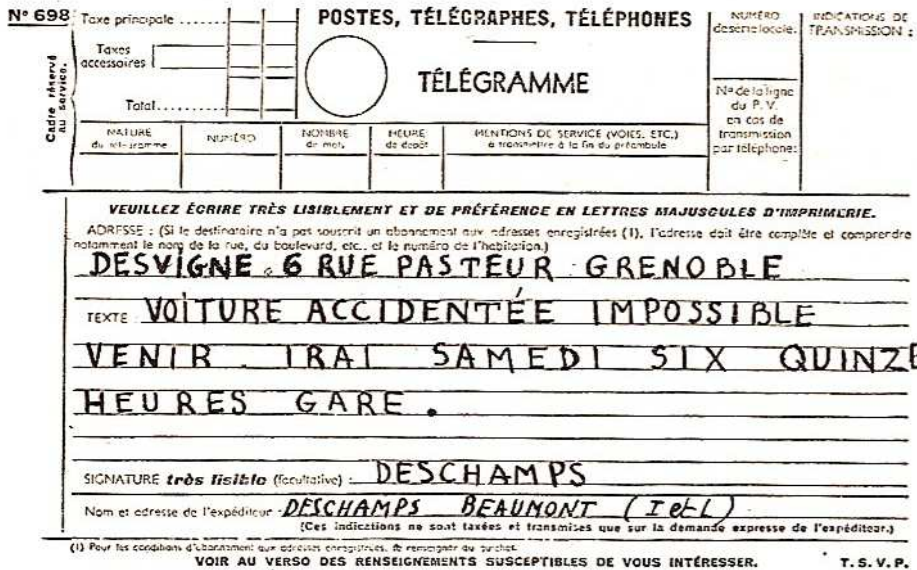 N° 698
Taxe principale
POSTES, TÉLÉGRAPHES, TÉLÉPHONES
NUMÉRO
INDICATIONS DE
TRANSMISSION :
Taxes
accessoires
TÉLÉGRAMME
N° de la ligne
du P. V.
en cas de
transmission
par téléphone:
Total
Cadre réservé
au service.
NATURE
du télégramme
NUMÉRO
NOMBRE
de mots
HEURE
de dépôt
MENTIONS DE SERVICE (VOIES, ETC.)
à transmettre à la fin du préambule
VEUILLEZ ÉCRIRE TRÈS LISIBLEMENT ET DE PRÉFÉRENCE EN LETTRES MAJUSCULES D'IMPRIMERIE.
ADRESSE : (Si le destinataire n'a pas souscrit un abonnement aux adresses enregistrées (1), l'adresse doit être complète et comprendre
notamment le nom de la rue, du boulevard, etc., et le numéro de l'habitation.)
DESVIGNE 6 RUE PASTEUR GRENOBLE
TEXTE VOITURE ACCIDENTÉE IMPOSSIBLE
VENIR . IRAI SAMEDI SIX QUINZE
HEURES GARE .
SIGNATURE très lisible (facultative) : DESCHAMPS
Nom et adresse de l'expéditeur DESCHAMPS BEAUMONT (I et L)
(Ces indications ne sont taxées et transmises que sur la demande expresse de l'expéditeur.)
(1) Pour les conditions d'abonnement aux adresses enregistrées, se renseigner au guichet.
VOIR AU VERSO DES RENSEIGNEMENTS SUSCEPTIBLES DE VOUS INTÉRESSER. T. S. V. P.